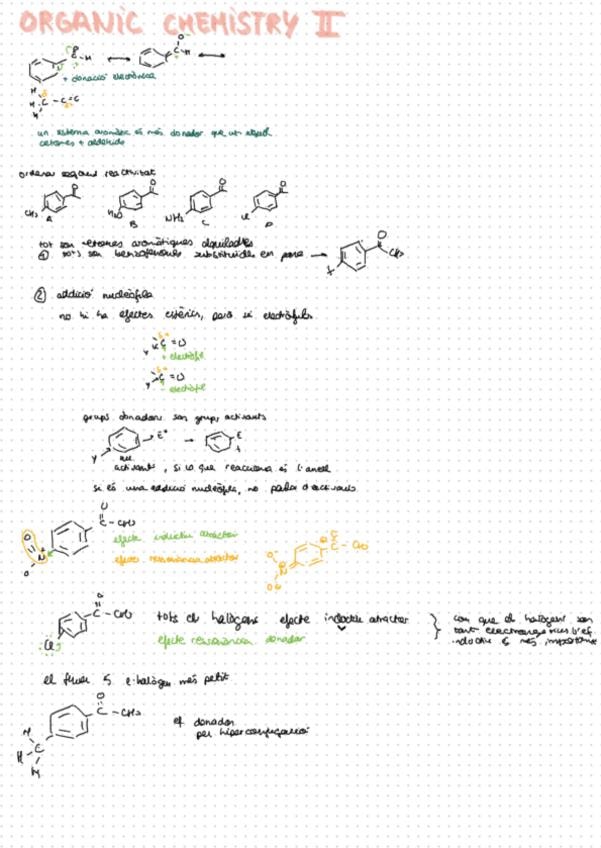 ORGANIC CHEMISTRY II
+ donació electrònica
un sistema aromàtic és més donador que un alquil
cetones + aldehids
ordenar segons reactivitat
CH₃ A
B
NH₂ C
D
tot son cetones aromàtiques alquilades
① tots son benzofenones substituides en para →
CH₃
② addició nucleòfila
no hi ha efectes estèrics, però sí electròfils
Y C=O
+ electròfil
Y C=O
- electròfil
grups donadors son grups activants
Y E⁺ → E
activants, si lo que reacciona és l'anell
si és una addició nucleòfila, no parlar d'activants
C - CH₃
efecte inductiu atractor
efecte ressonància atractor
Cl C - CH₃ tots els halògens efecte inductiu atractor
efecte ressonància donador
com que els halògens son
tant electronegatius l'ef.
inductiu és més important
el fluor és l'halògen més petit
C - CH₃
ef donador
per hiperconjugació
H C
H
H